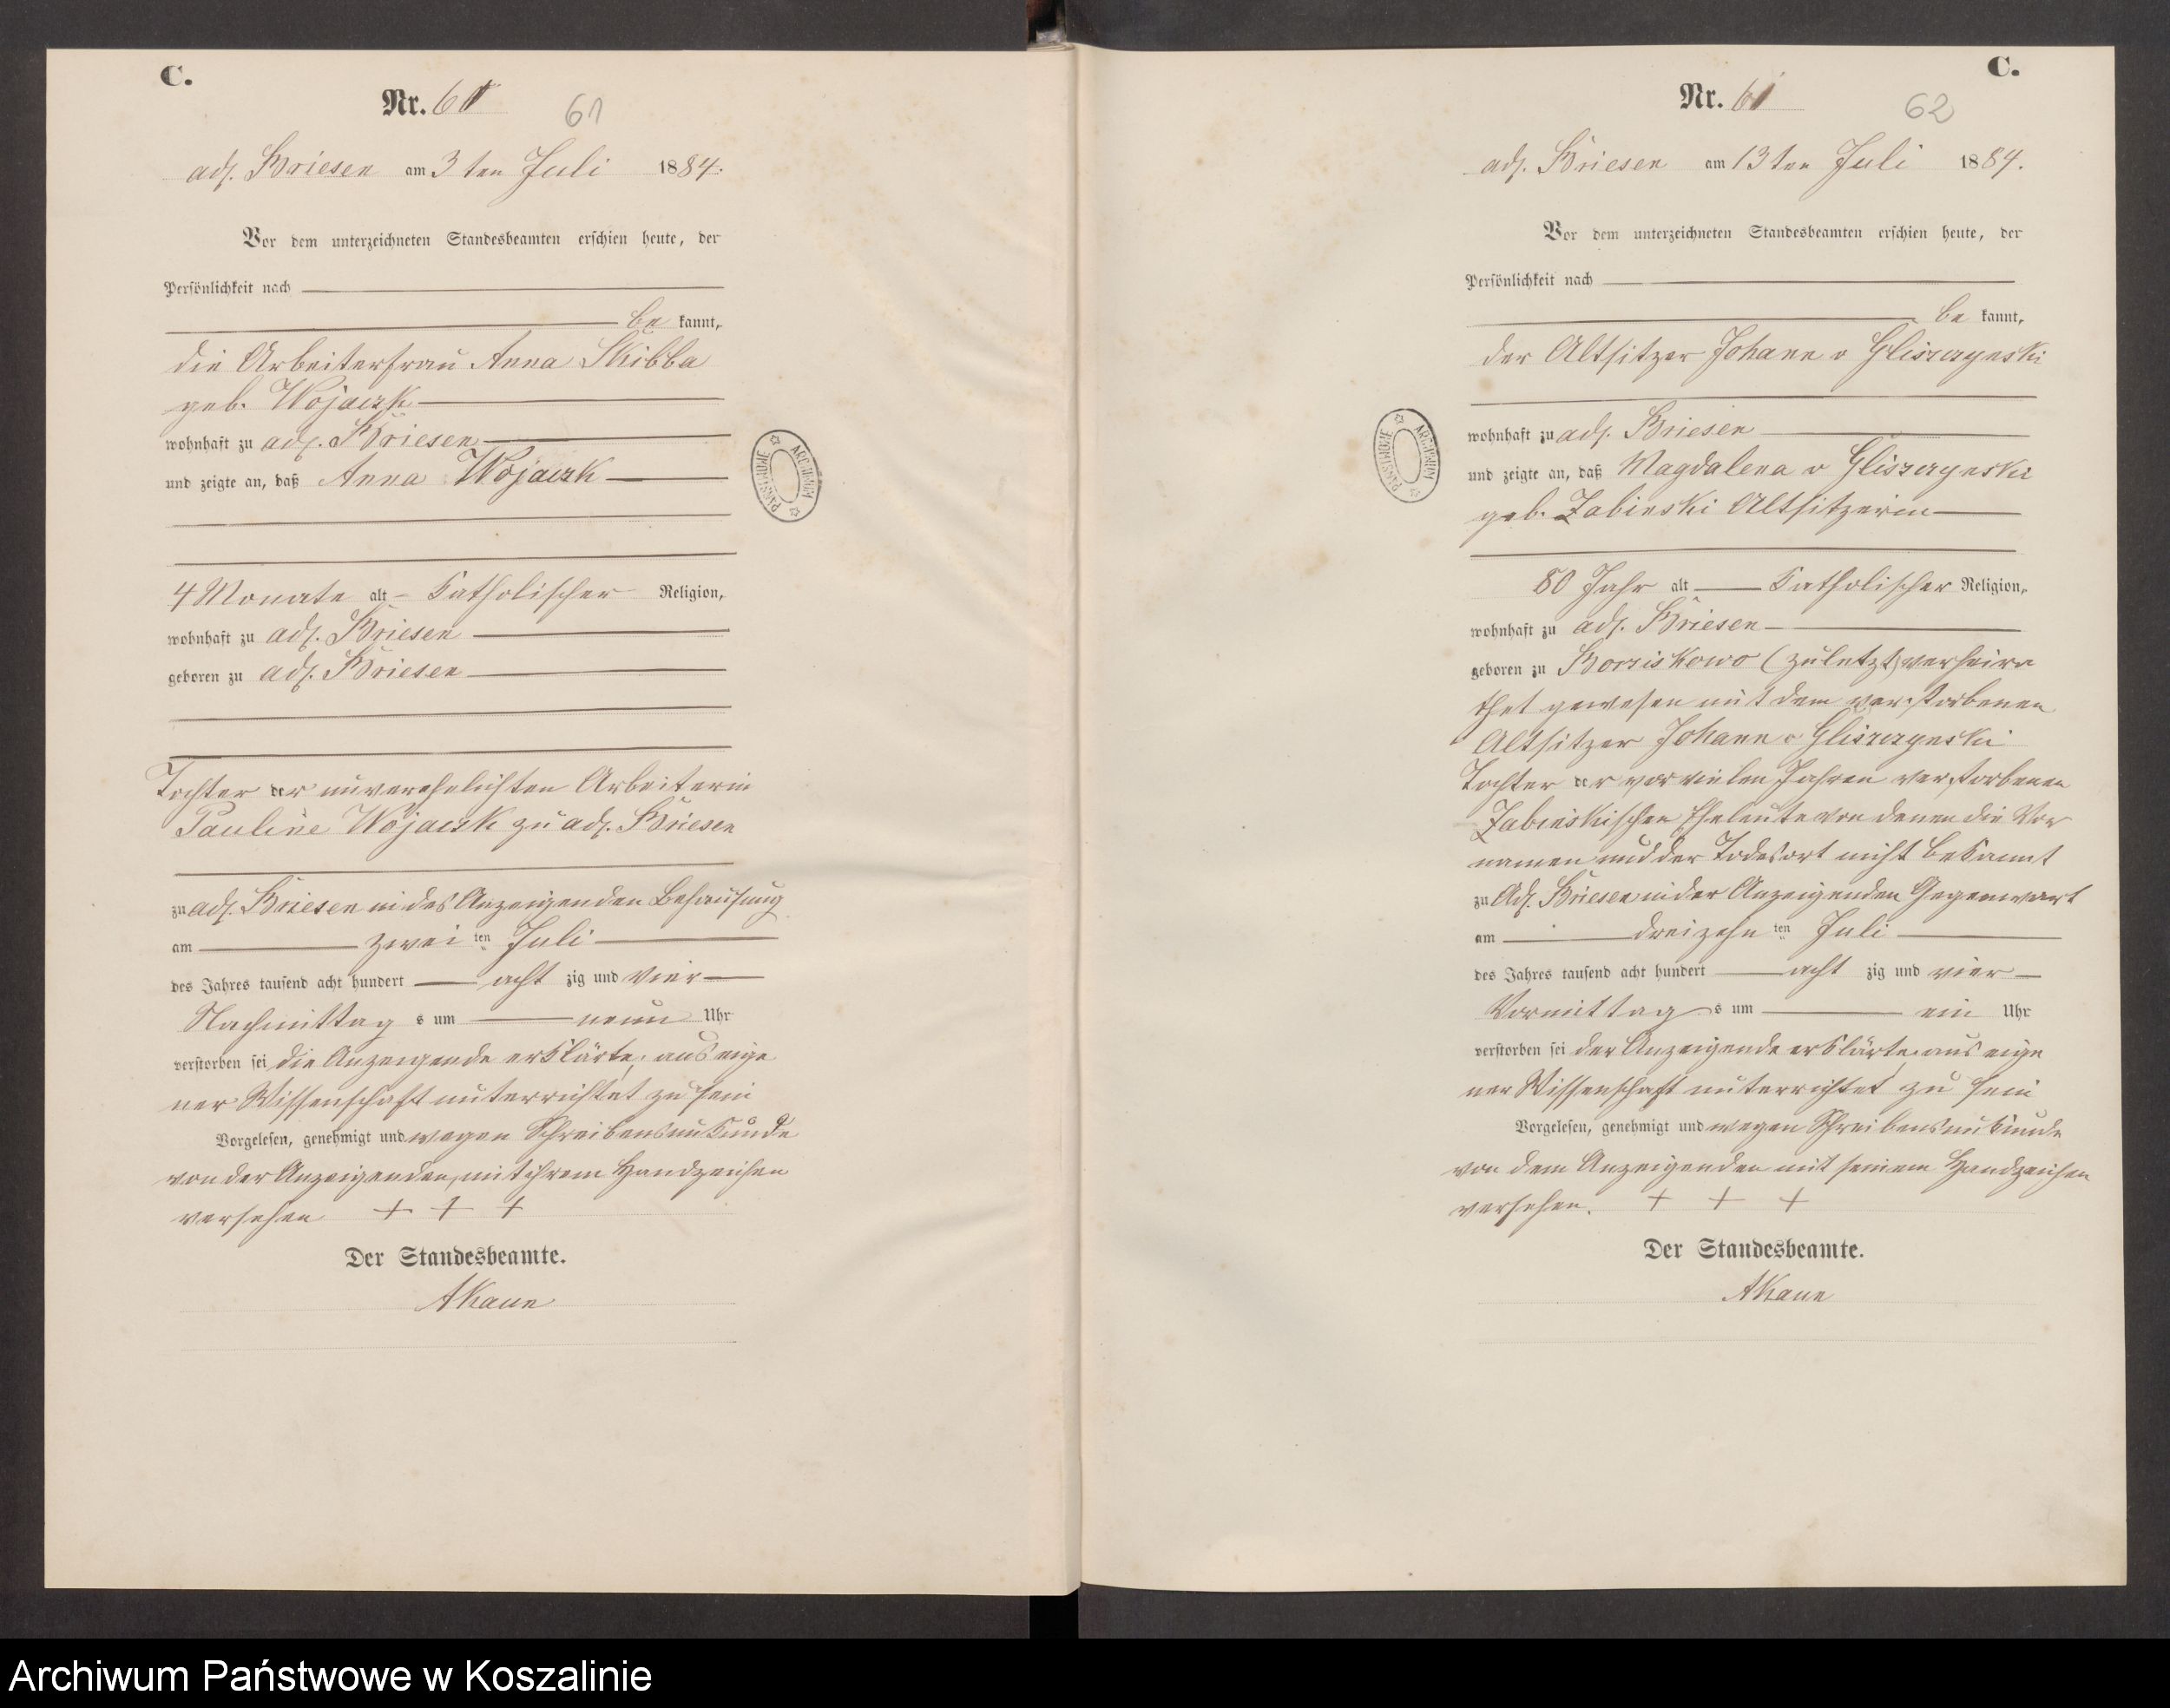 C.
Nr. 60
61
adl. Briesen am 3 ten Juli 1884.
Vor dem unterzeichneten Standesbeamten erschien heute, der
Persönlichkeit nach
be kannt,
die Arbeiterfrau Anna Skibba
geb. Wojaczk
wohnhaft zu adl. Briesen
und zeigte an, daß Anna Wojaczk
4 Monate alt katholischer Religion,
wohnhaft zu adl. Briesen
geboren zu adl. Briesen
Tochter der unverehelichten Arbeiterin
Pauline Wojaczk zu adl. Briesen
zu adl. Briesen in des Anzeigenden Behausung
am zwei ten Juli
des Jahres tausend acht hundert acht zig und vier
Nachmittag s um neun Uhr
verstorben sei die Anzeigende erklärte, aus eige
ner Wissenschaft unterrichtet zu sein
Vorgelesen, genehmigt und wegen Schreibensunkunde
von der Anzeigenden, mit ihrem Handzeichen
versehen + + +
Der Standesbeamte.
ARCHIWUM PAŃSTWOWE
C.
Nr. 61
62
adl. Briesen am 13 ten Juli 1884.
Vor dem unterzeichneten Standesbeamten erschien heute, der
Persönlichkeit nach
be kannt,
der Altsitzer Johann v Gliszczynski
wohnhaft zu adl. Briesen
und zeigte an, daß Magdalena v Gliszczynski
geb. Zabinski Altsitzerin
80 Jahr alt katholischer Religion,
wohnhaft zu adl. Briesen
geboren zu Borziskowo (zuletzt) verheira
thet gewesen mit dem verstorbenen
Altsitzer Johann v Gliszczynski
Tochter der vor vielen Jahren verstorbenen
Zabinskischen Eheleute von denen die Vor
namen und der Todesort nicht bekannt
zu Adl. Briesen in der Anzeigenden Gegenwart
am dreizehn ten Juli
des Jahres tausend acht hundert acht zig und vier
Vormittag s um ein Uhr
verstorben sei der Anzeigende erklärte, aus eige
ner Wissenschaft unterrichtet zu sein
Vorgelesen, genehmigt und wegen Schreibensunkunde
von dem Anzeigenden mit seinem Handzeichen
versehen. + + +
Der Standesbeamte.
ARCHIWUM PAŃSTWOWE
Archiwum Państwowe w Koszalinie